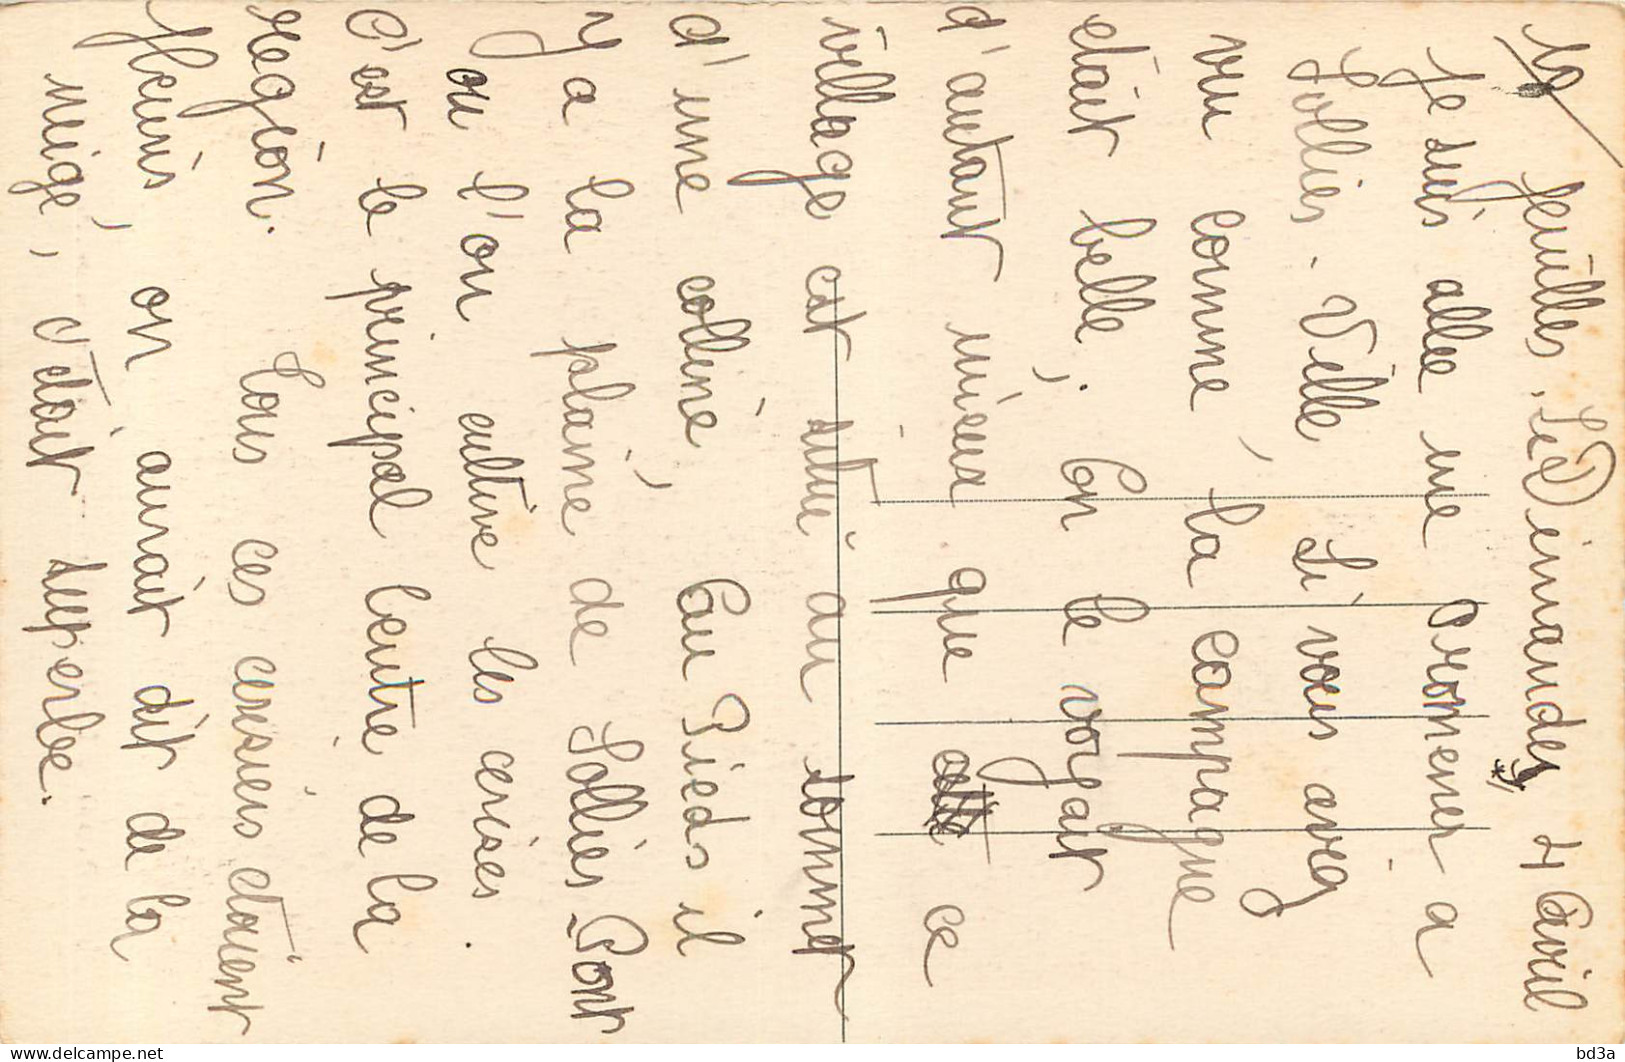 feuilles. Le Dimandes 4 Avril
Je suis allee me Promener a
Sollies-Ville Si vous aviez
vu comme, la campagne
etait belle, . En le voyait
d'autant mieux que ce
village est situé au sommer
d'une coline, Au Pieds il
y a la plaine de Sollies-Pont
ou l'on cultive les cerises.
C'est le principal Centre de la
région. Tous ces cerisiers etaient
fleuris, on aurait dit de la
neige, c'était superbe.
bd3a
delcampe.net